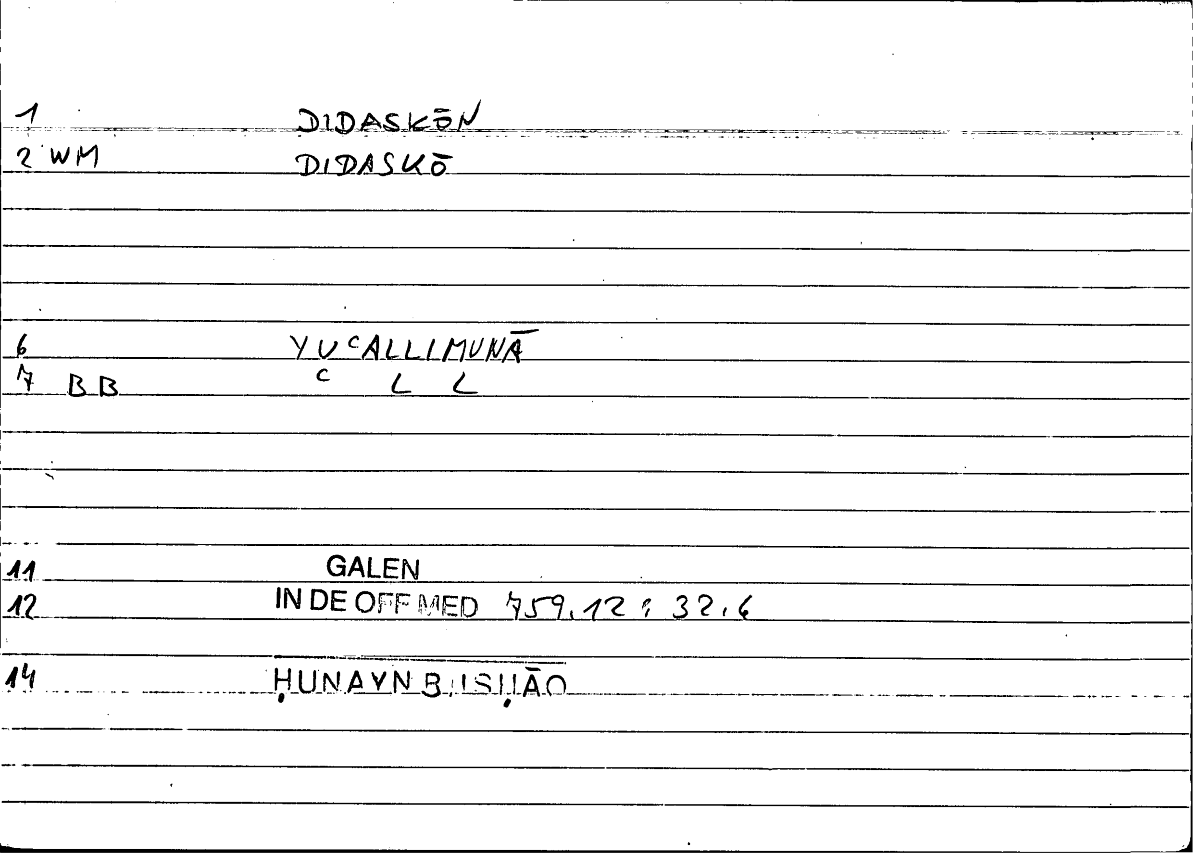 1 DIDASKŌN
2 WM DIDASKŌ
6 YUᶜALLIMUNĀ
7 BB C L L
11 GALEN
12 IN DE OFF MED 759.12 : 32.6
14 ḤUNAYN B. ISḤĀQ